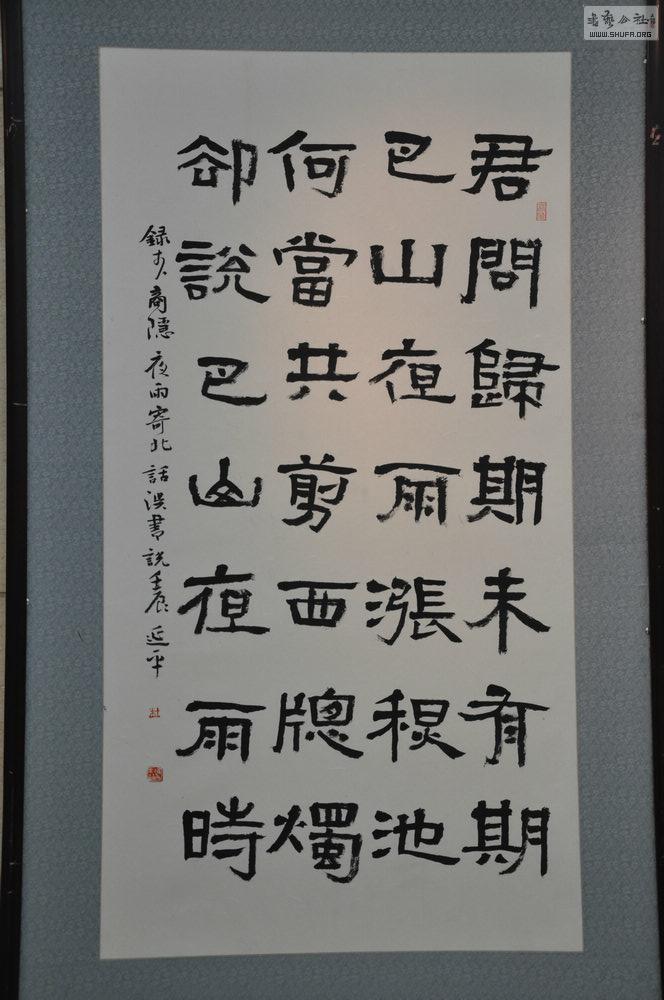 君問歸期未有期
巴山夜雨漲秋池
何當共剪西牕燭
卻說巴山夜雨時
録李商隱夜雨寄北 話誤書說 壬辰 延平
書藝公社
WWW.SHUFA.ORG